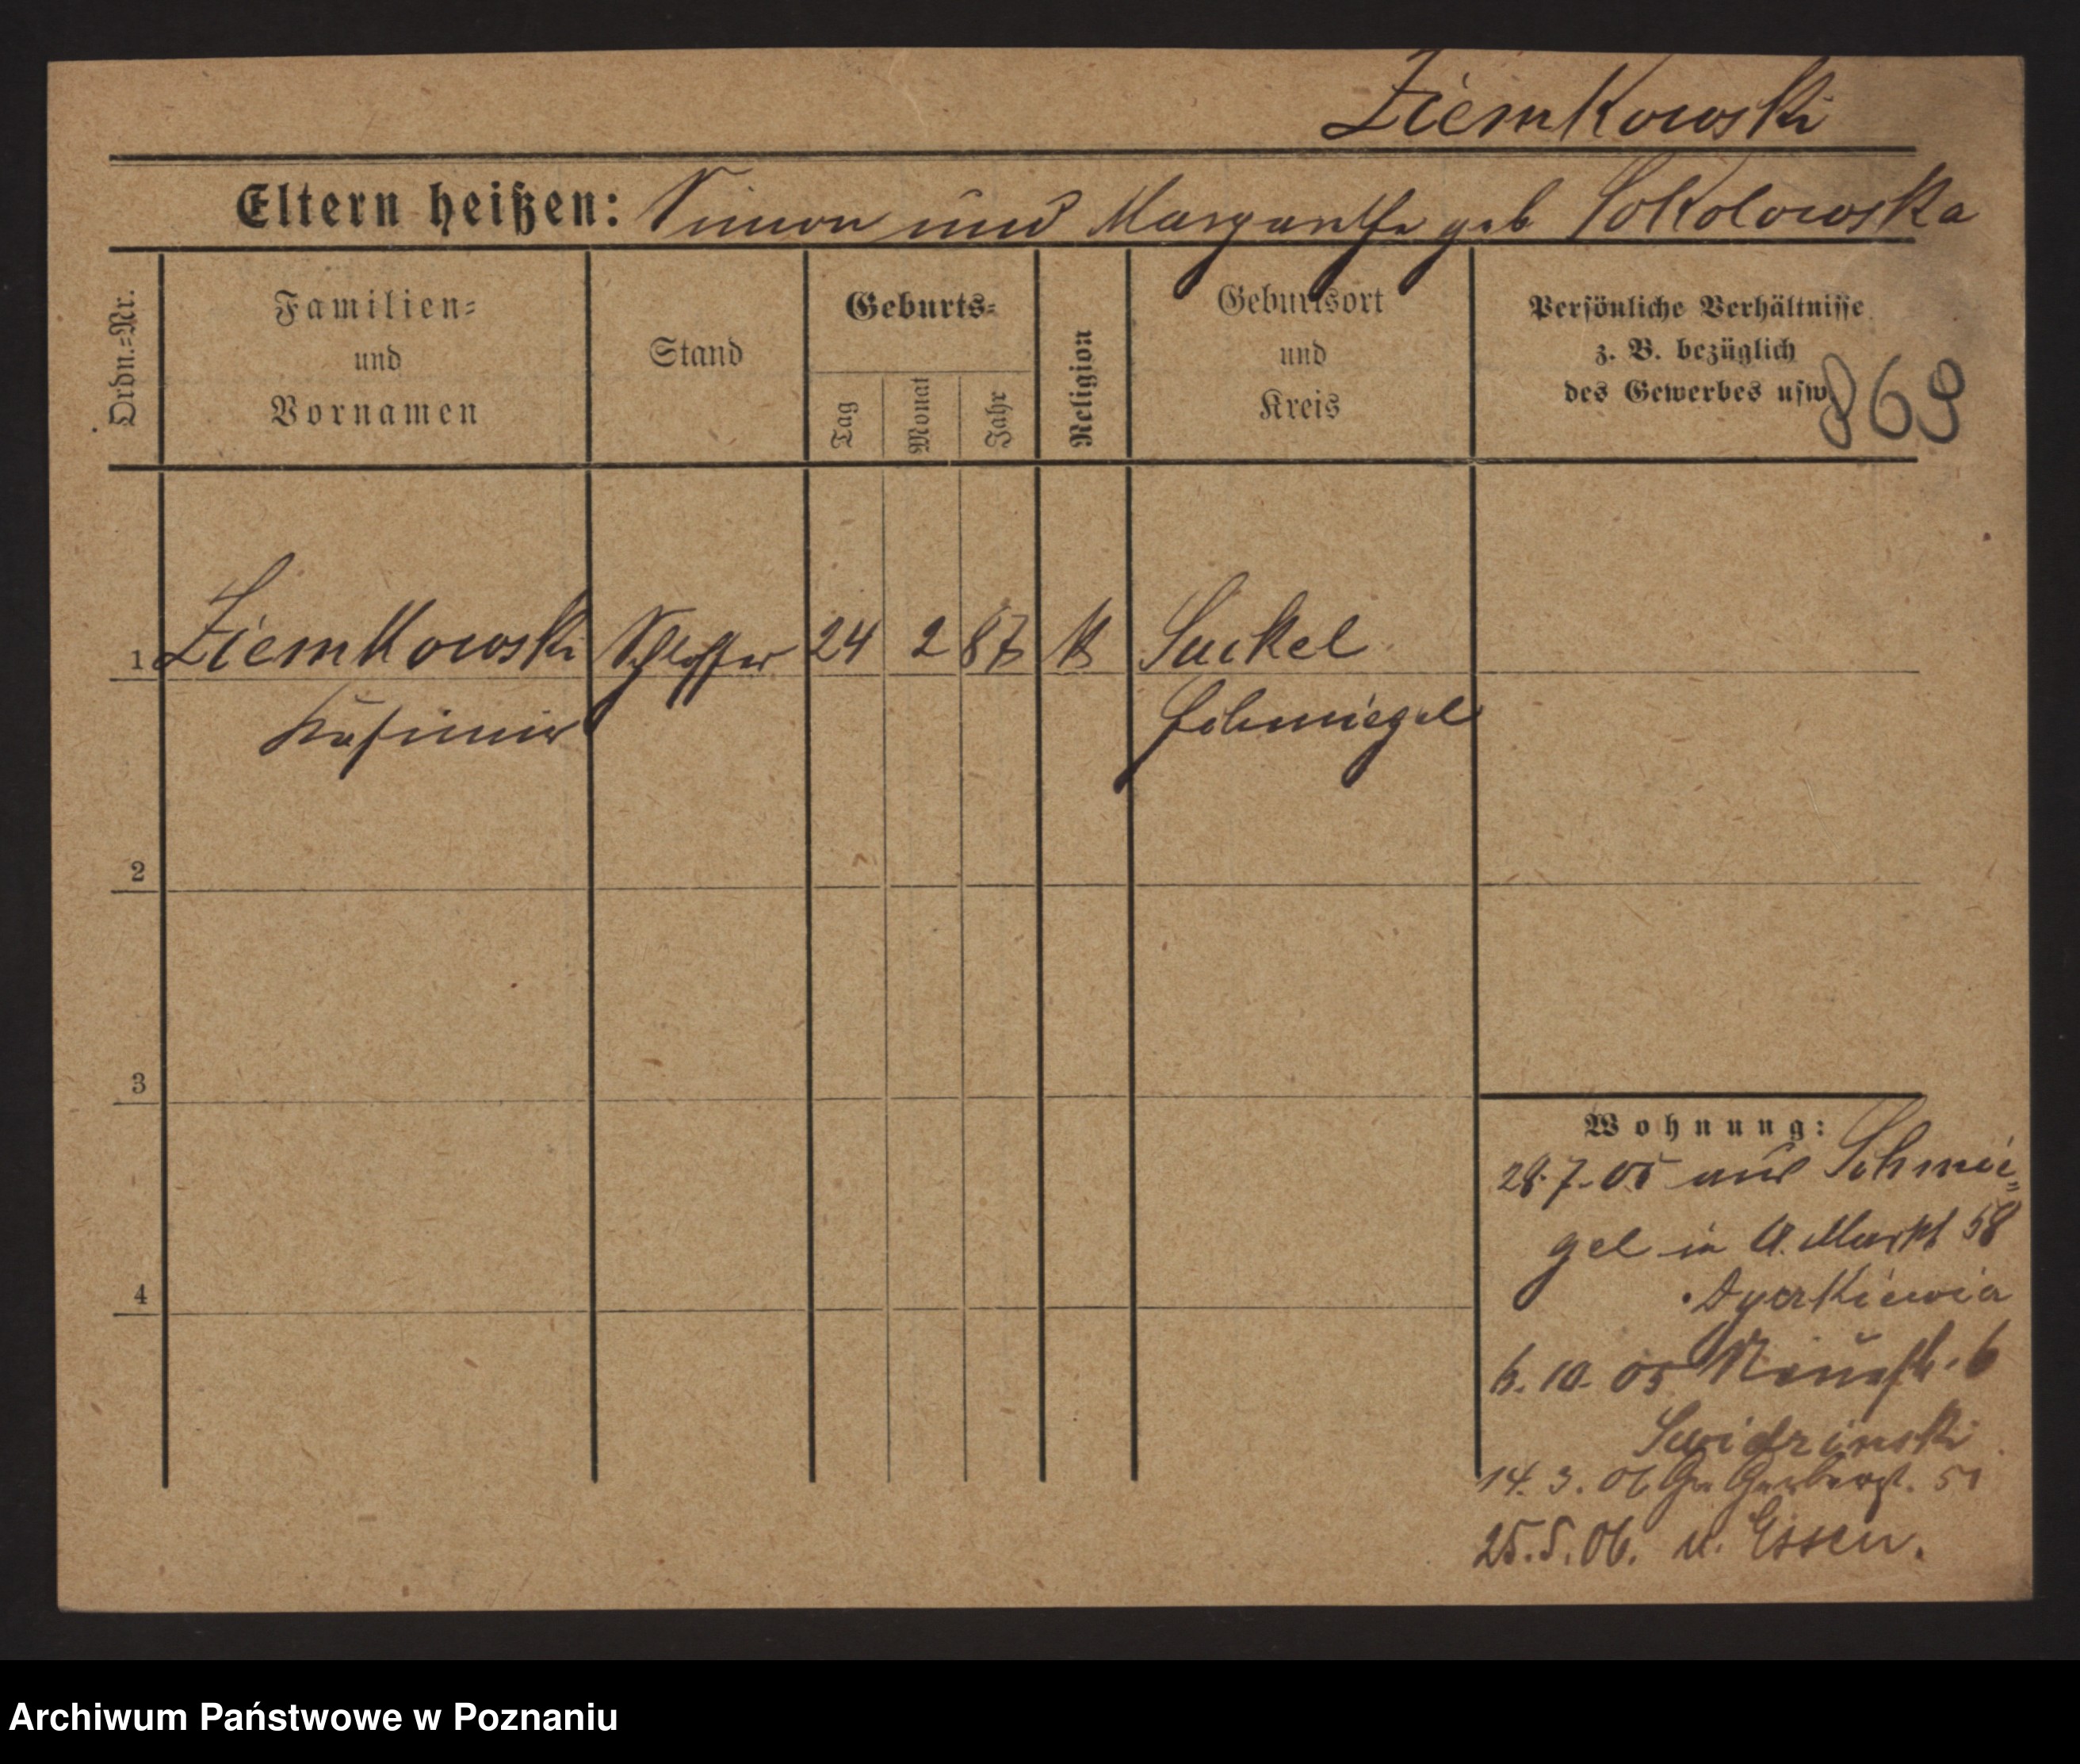 Ziemkowski
Eltern heißen: Simon und Margarethe geb Sokolowska
Ordn.=Nr.
Familien=
und
Vornamen
Stand
Geburts=
Tag
Monat
Jahr
Religion
Geburtsort
und
Kreis
Persönliche Verhältnisse
z. B. bezüglich
des Gewerbes usw.
869
1 Ziemkowski Schlosser 24 2 87 K
Kasimir Schmiegel
2
3
4
Wohnung:
28.7.05 aus Schmie=
gel in A. Markt 58
6.10.05 Neustr. 6
Swidzinski
14.3.06 Gr Gerberst. 51
25.5.06. n. Essen.
Archiwum Państwowe w Poznaniu